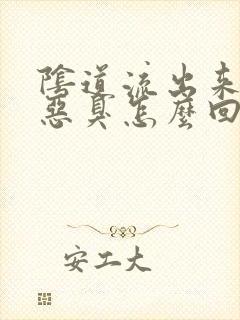 陰道流出来
惡臭怎麼回
安工大